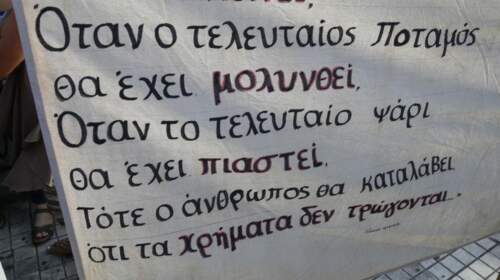 Όταν ο τελευταίος Ποταμός
θα έχει μολυνθεί,
Όταν το τελευταίο ψάρι
θα έχει πιαστεί,
Τότε ο άνθρωπος θα καταλάβει
ότι τα χρήματα δεν τρώγονται..